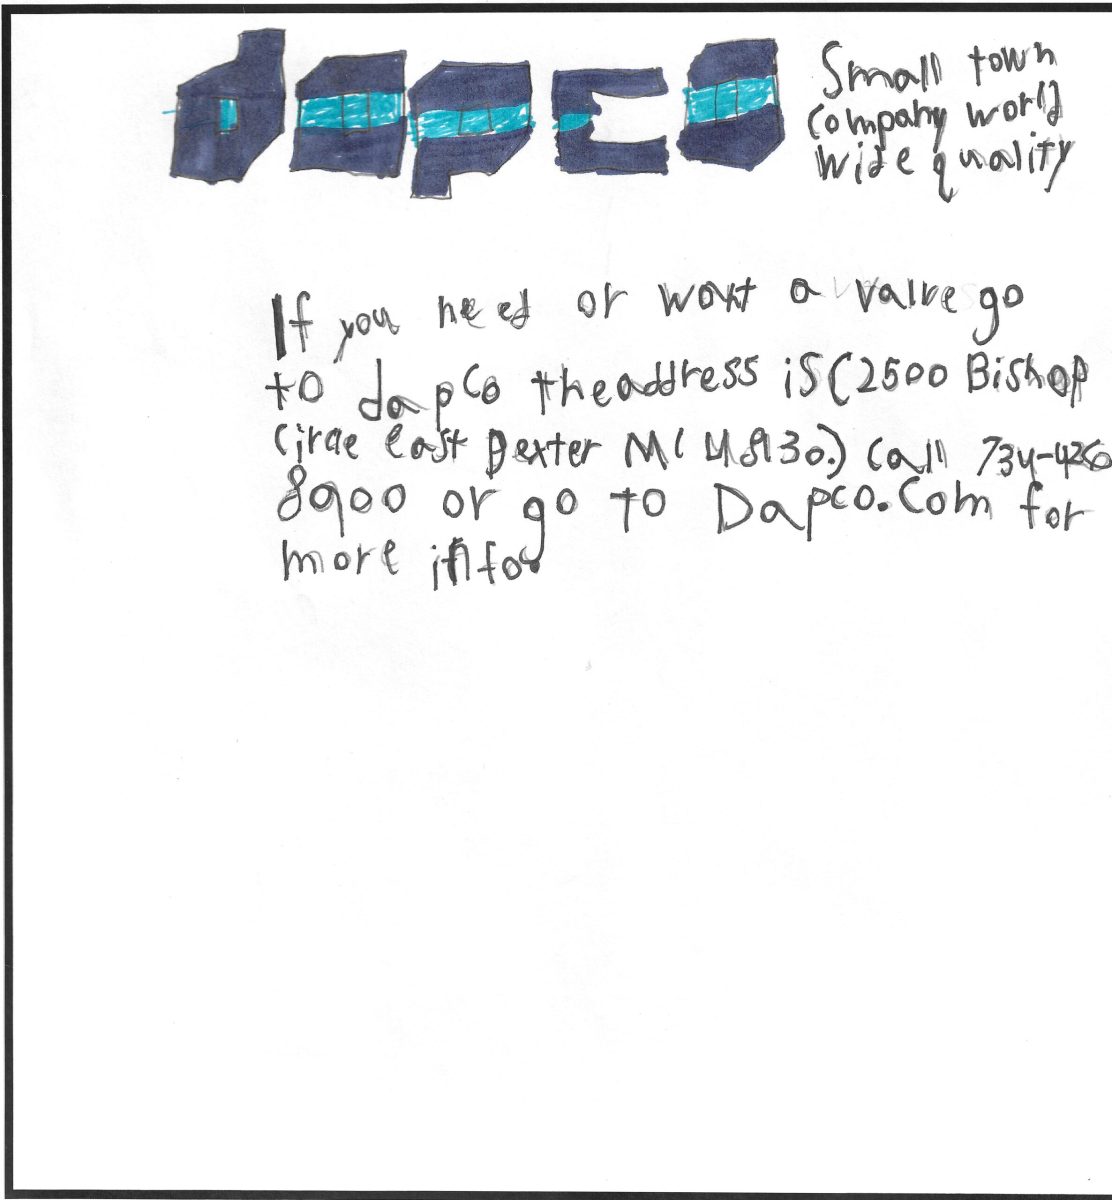 dapco
Small town
Company world
wide quality
If you need or want a valve go
to dapco theaddress is (2500 Bishop
Circle East Dexter MI 48130.) Call 734-426
8900 or go to Dapco.Com for
more info.